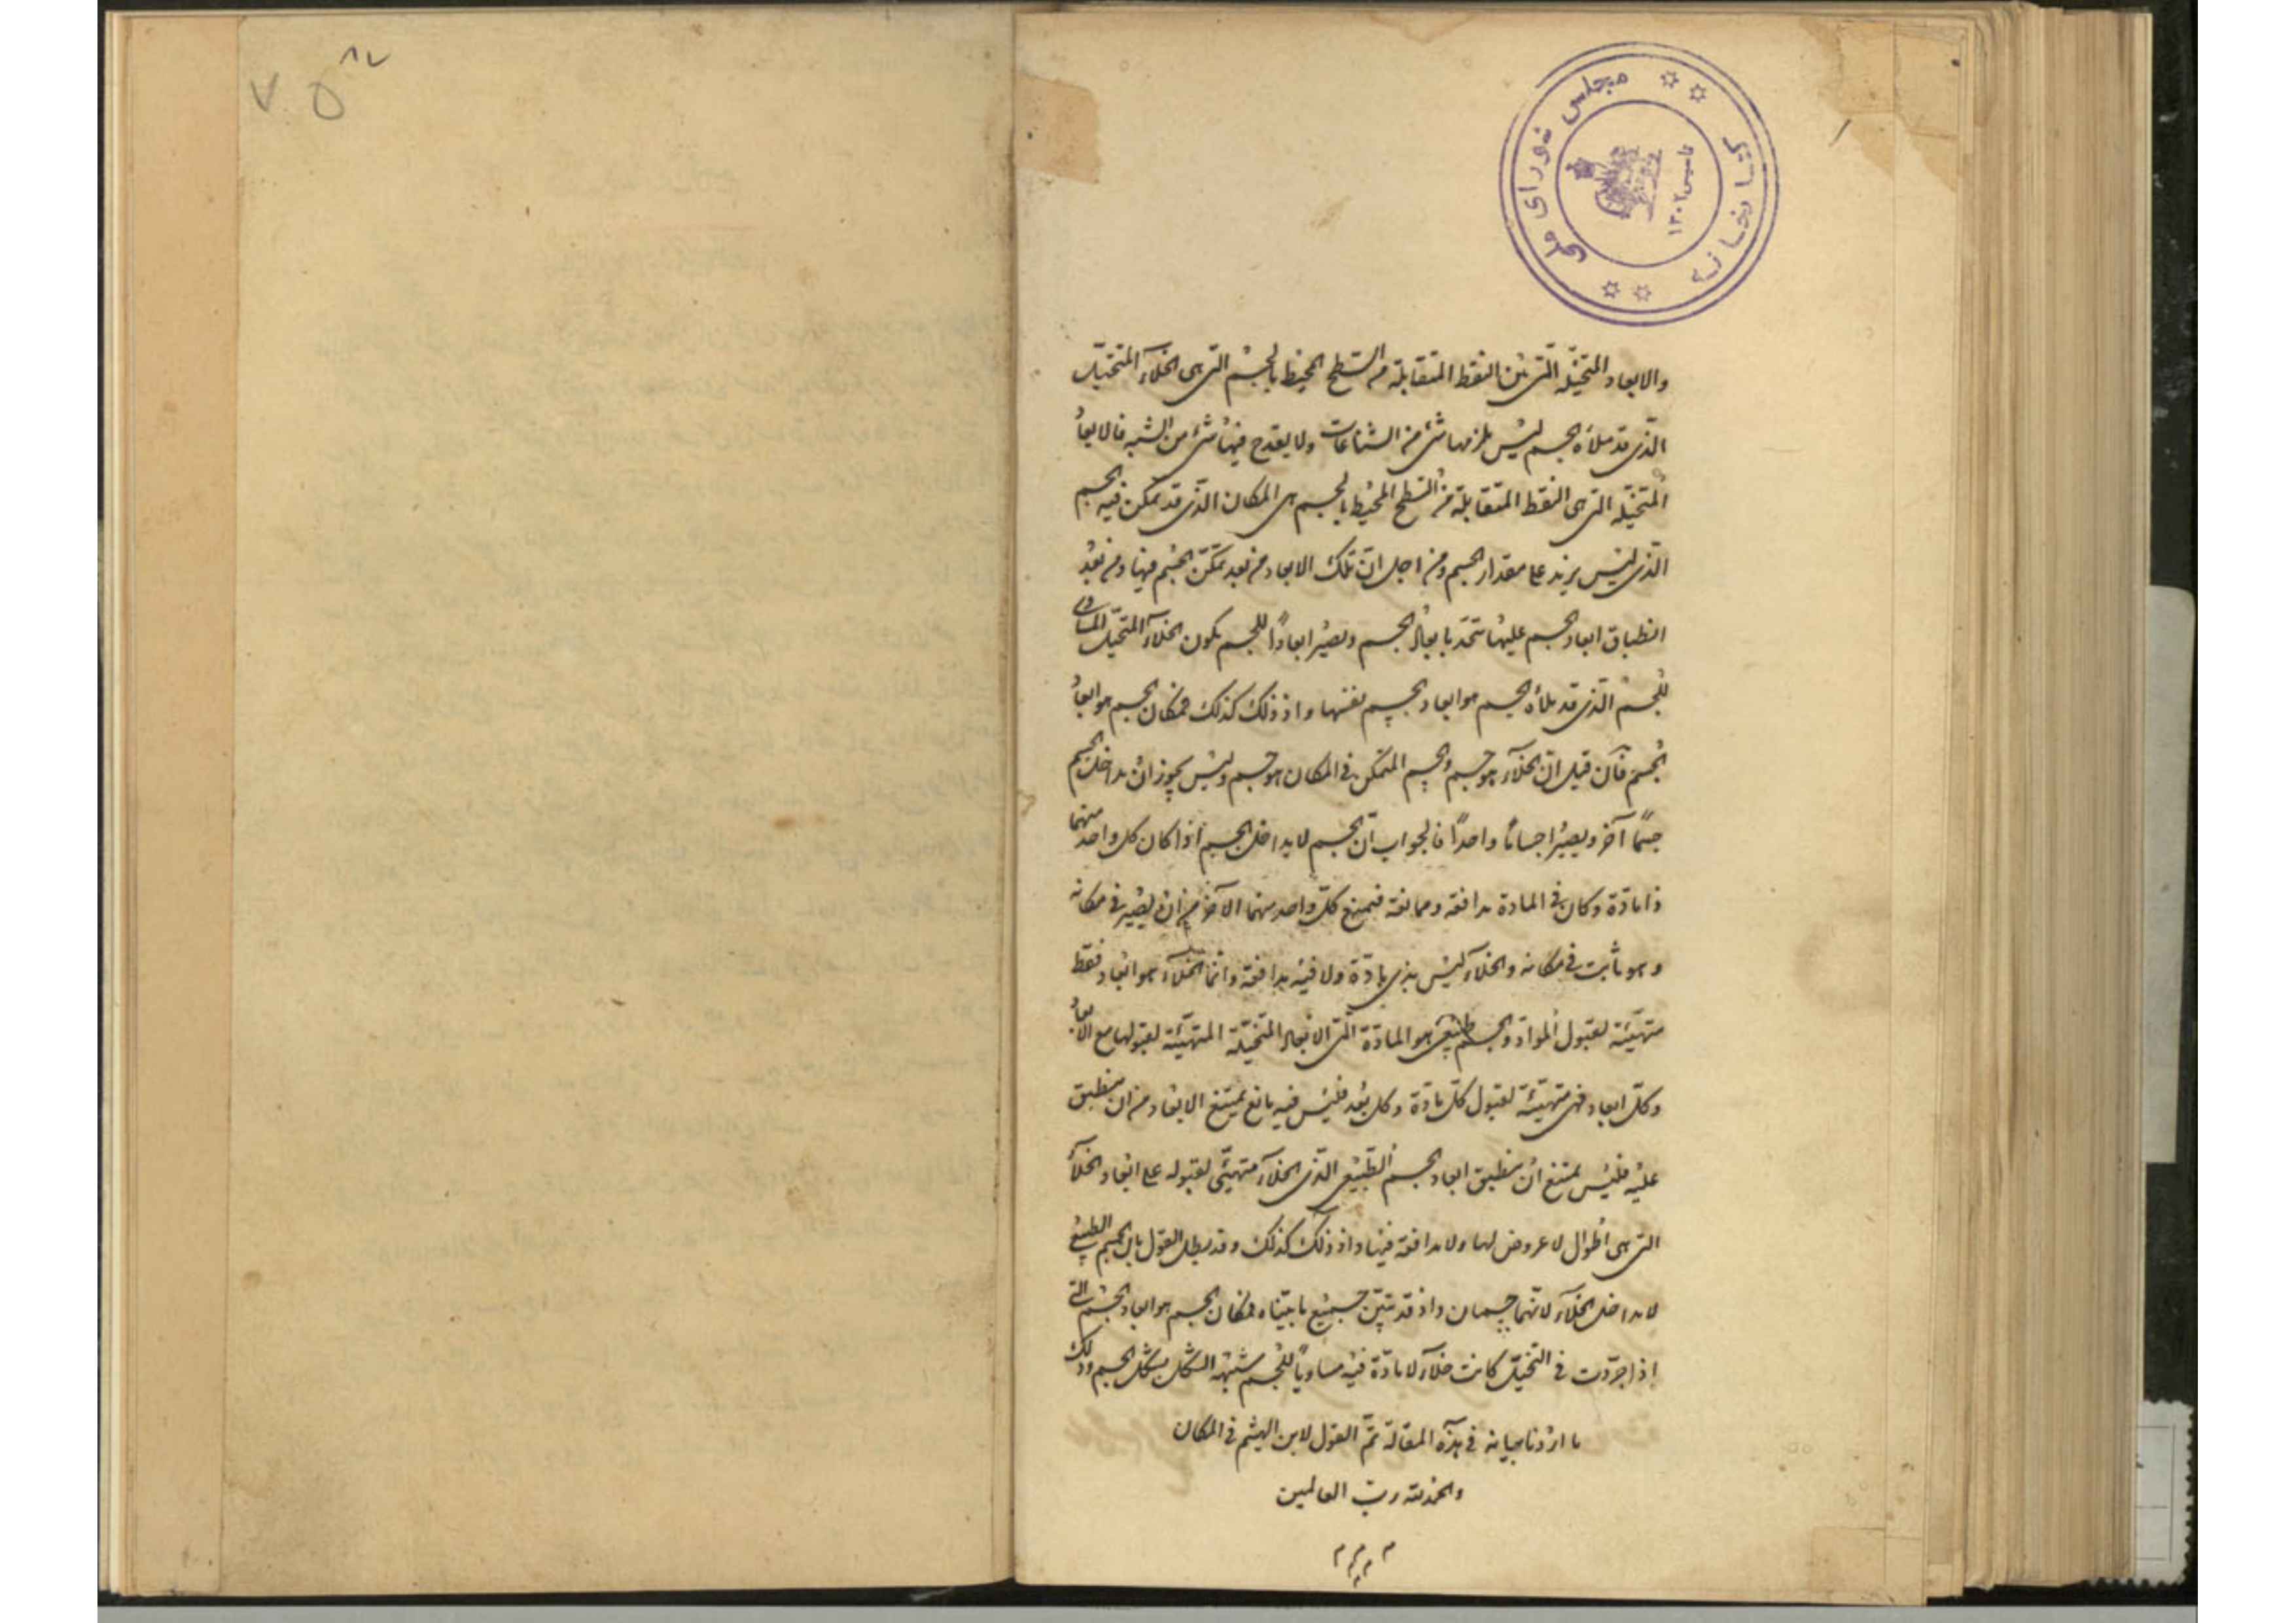 ٧٥
٨٧
كتابخانه مجلس شورای ملی
تاسيس ١٣٠٢
والابعاد المتخيّله الّتى بين النقط المتقابلة من السّطح المحيط بالجسم التى هى الخلآء المتخيّل
الّذى قد ملأه الجسم ليس يلزمها شئ من الشناعات ولا يقدح فيها شئ من الشبه فالابعاد
المتخيّله التى هى النقط المتقابلة من السّطح المحيط بالجسم هى المكان الّذى قد تمكن فيه الجسم
الّذى ليس يزيد على مقدار الجسم ومن اجل انّ تلك الابعاد من بعد تمكّن الجسم فيها ومن بعد
انطباق ابعاد الجسم عليها تتحد بابعاد الجسم ويصير ابعادًا للجسم يكون الخلآء المتخيّل المساوى
للجسم الّذى قد ملأه الجسم هو ابعاد الجسم نفسها واذ ذلك كذلك فمكان الجسم هو ابعاد
الجسم فان قيل انّ الخلآء هو جسم والجسم المتمكن فى المكان هو جسم وليس يجوز ان يداخل الجسم
جسمًا آخر ويصير اجسامًا واحدًا فالجواب انّ الجسم لا يداخل الجسم اذا كان كل واحد منهما
ذا مادّة وكان فى المادة مدافعة وممانعة فيمنع كلّ واحد منهما الآخر من ان يصير فى مكانه
وهو ثابت فى مكانه والخلآء ليس بذى مادّة ولا فيه مدافعة وانّما الخلآء هو ابعاد فقط
متهيّئة لقبول الموادّ والجسم الطبيعى هو المادّة الّتى الابعاد المتخيّلة المتهيّئة لقبولها مع الابعاد
وكلّ ابعاد فهى متهيّئة لقبول كلّ مادّة وكل بعد فليس فيه مانع يمتنع الابعاد من ان ينطبق
عليه فليس يمتنع ان ينطبق ابعاد الجسم الطّبيعى الّذى الخلآء متهيّئ لقبوله على ابعاد الخلآء
التى هى اطوال لا عروض لها ولا مدافعة فيها واذ ذلك كذلك وقد بطل القول بان الجسم الطبيعى
لا يداخل الخلآء لانّهما جسمان واذ قد تبيّن جميع ما بيّناه فمكان الجسم هو ابعاد الجسم الّتى
اذا جرّدت فى التخيّل كانت خلآء لا مادّة فيه مساويًا للجسم شبيه الشكل بشكل الجسم وذلك
ما اردنا بيانه فى هذه المقالة تمّ القول لابن الهيثم فى المكان
والحمد لله ربّ العالمين